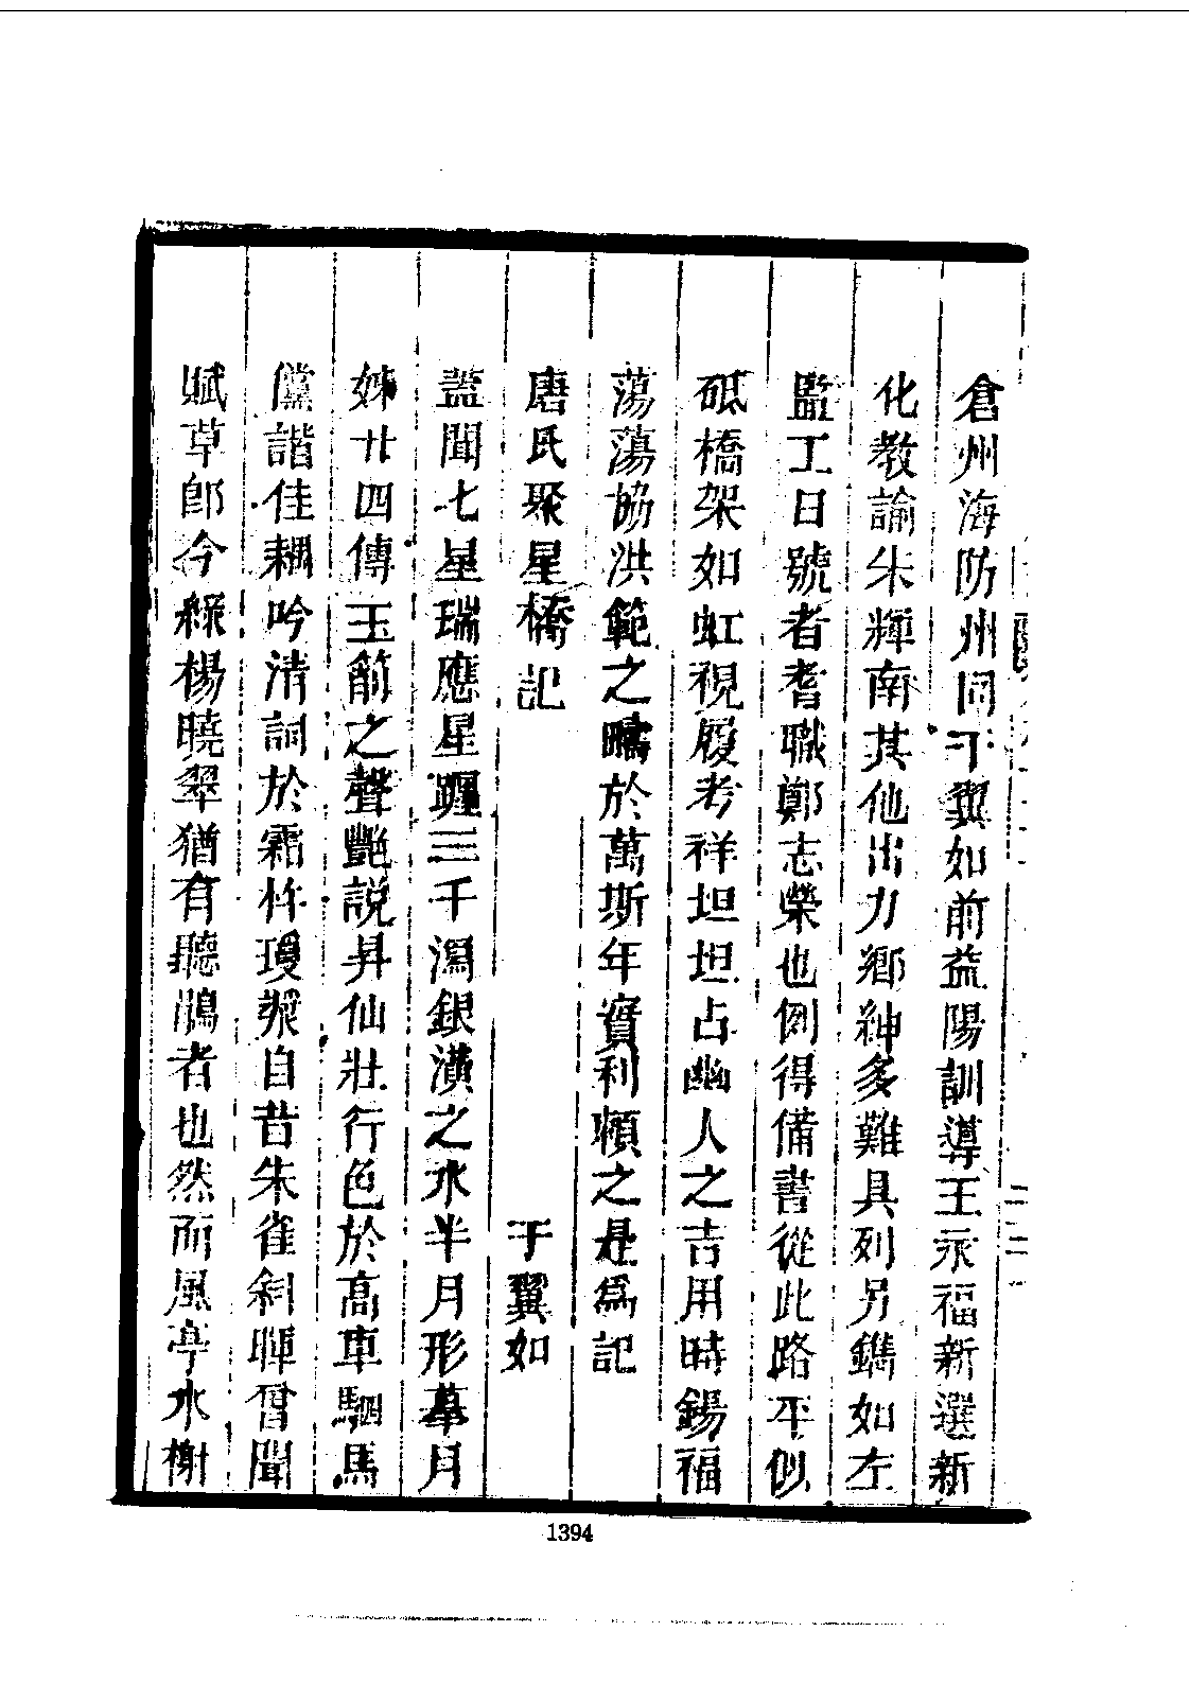 倉州海防州同于翼如前益陽訓導王永福新選新
化教諭朱輝南其他出力鄉紳多難具列另鐫如左
監工日號者耆職鄭志榮也例得備書從此路平似
砥橋架如虹視履考祥坦坦占幽人之吉用時錫福
蕩蕩協洪範之疇於萬斯年實利賴之是爲記
唐氏聚星橋記
于翼如
蓋聞七星瑞應星躔三千瀉銀潢之水半月形摹月
姊廿四傳玉簫之聲艷説昇仙壯行色於高車駟馬
儻諧佳耦吟清詞於霜杵瓊漿自昔朱雀斜暉曾聞
賦草郎今綠楊曉翠猶有聽鵑者也然而風亭水榭
二二
1394